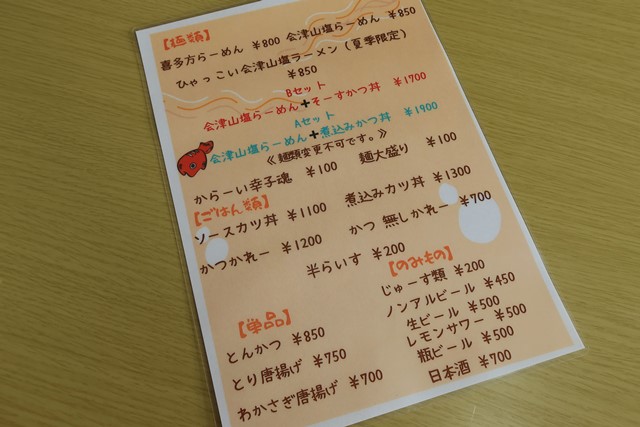 【麺類】
喜多方らーめん ¥800 会津山塩らーめん ¥850
ひゃっこい会津山塩ラーメン(夏季限定)
¥850
Bセット
会津山塩らーめん+そーすかつ丼 ¥1700
Aセット
会津山塩らーめん+煮込みかつ丼 ¥1900
《麺類変更不可です。》
からーい幸子魂 ¥100 麺大盛り ¥100
【ごはん類】
ソースカツ丼 ¥1100 煮込みカツ丼 ¥1300
かつかれー ¥1200 かつ無しかれー ¥700
半らいす ¥200
【単品】
とんかつ ¥850
とり唐揚げ ¥750
わかさぎ唐揚げ ¥700
【のみもの】
じゅーす類 ¥200
ノンアルビール ¥450
生ビール ¥500
レモンサワー ¥500
瓶ビール ¥500
日本酒 ¥700